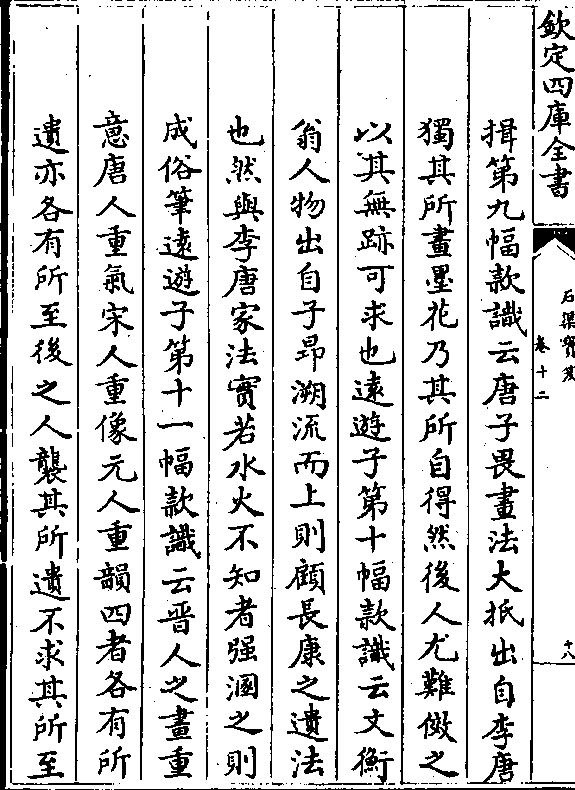 欽定四庫全書
石渠寶笈
卷十二
十八
揖第九幅款識云唐子畏畫法大抵出自李唐
獨其所畫墨花乃其所自得然後人尤難倣之
以其無跡可求也遠遊子第十幅款識云文衡
翁人物出自子昻溯流而上則顧長康之遺法
也然與李唐家法實若水火不知者强溷之則
成俗筆遠遊子第十一幅款識云晉人之畫重
意唐人重氣宋人重像元人重韻四者各有所
遺亦各有所至後之人襲其所遺不求其所至